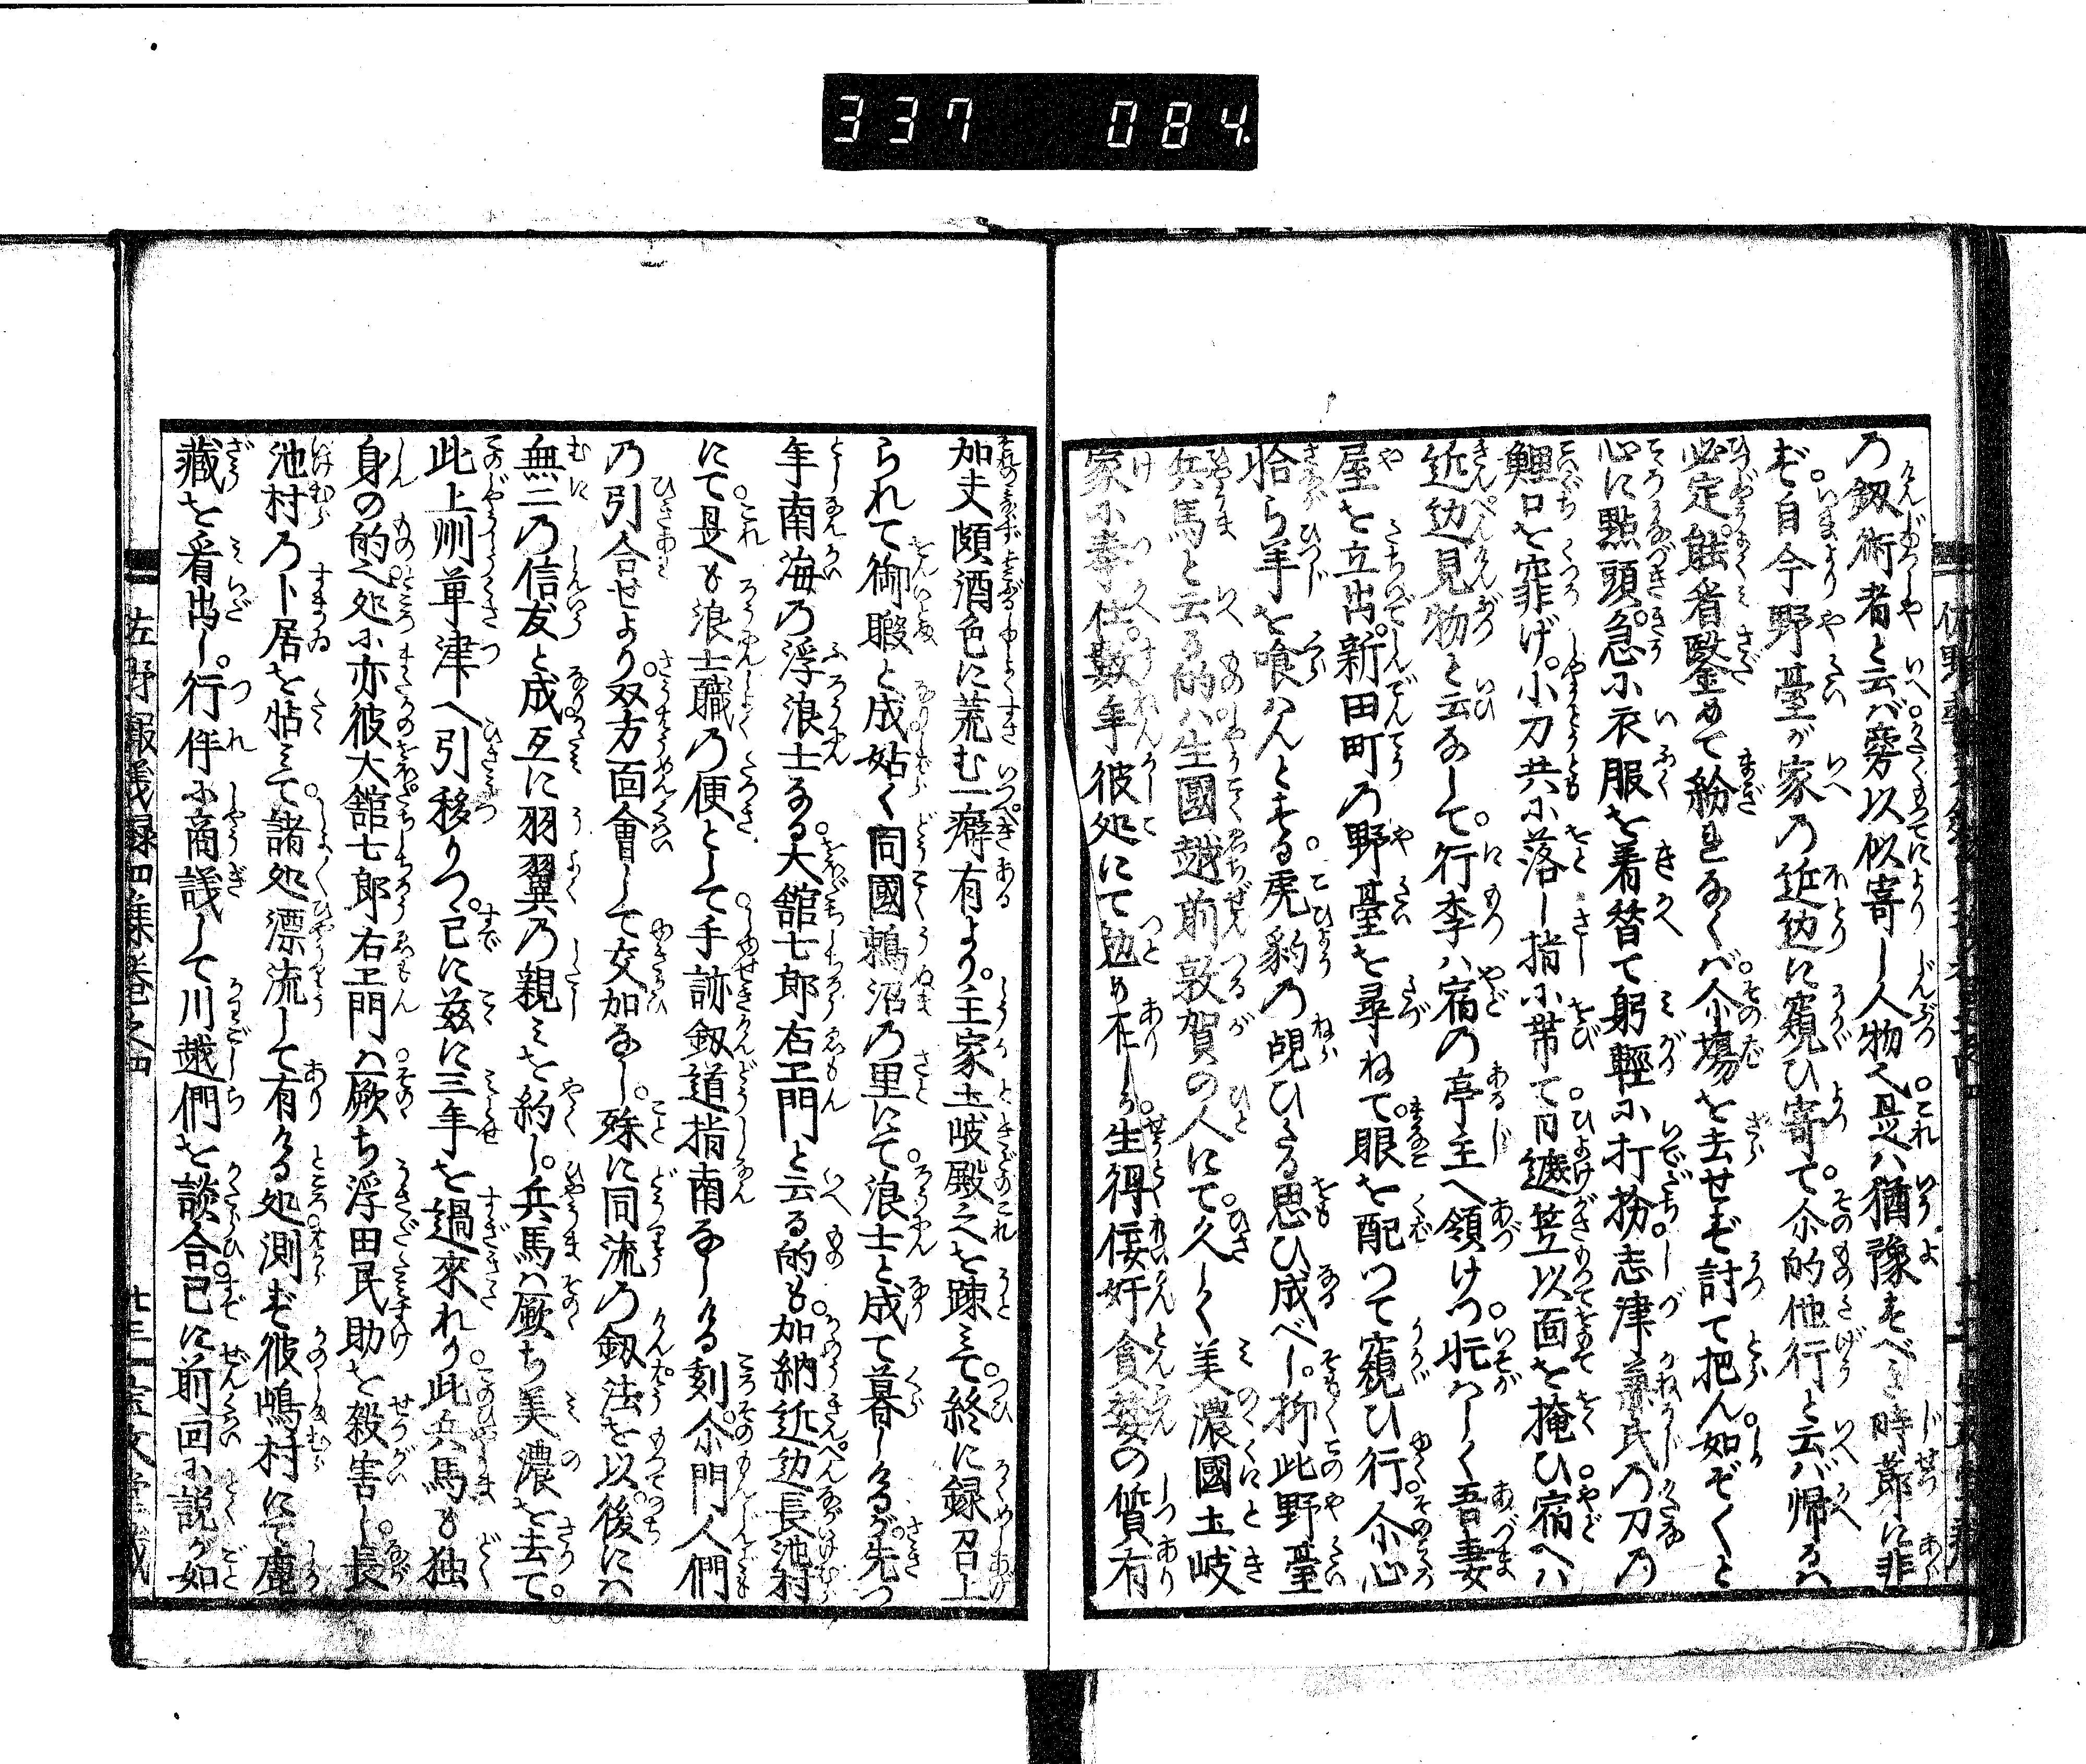 337 084
の釼術者と云バ旁以似寄し人物也是ハ猶豫すべき時節に非
ず自今野臺が家の近辺に窺ひ寄て尓的他行と云バ帰るハ
必定能看鑿めて紛れなくバ尓塲を去せず討て把ん如ぞくと
心に點頭急に衣服を着替て躬輕に打扮志津兼氏の刀の
鯉口を窕げ小刀共に落し指に帯て日遮笠以面を掩ひ宿ヘハ
近辺見物と云なして行李ハ宿の亭主へ領けつ忙ハしく吾妻
屋を立出新田町の野臺を尋ねて眼を配つて窺ひ行尓心
恰ら羊を喰ハんとする虎豹の覗ひたる思ひ成べし抑此野臺
兵馬と云る的ハ生國越前敦賀の人にて久しく美濃國土岐
家に奉仕數年彼処にて勉め在しが生得佞奸貪婪の質有
加夫頗酒色に荒む一癖有より主家土岐殿之を踈ミて終に録召上
られて御暇と成姑く同國鵜沼の里にて浪士と成て暮しけるが先つ
年南海の浮浪士なる大舘七郎右エ門と云る的も加納近辺長池村
にて是も浪士職の便として手跡釼道指南なしける刻尓門人們
の引合せより双方面會して交加なし殊に同流の釼法を以後にハ
無二の信友と成互に羽翼の親ミを約し兵馬ハ厥ち美濃を去て
此上州草津へ引移りつ已に茲に三年を過來れり此兵馬も独
身の的也処に亦彼大舘七郎右エ門ハ厥ち浮田民助を殺害し長
池村の卜居を帖ミて諸処漂流して有ける処測ず彼嶋村にて鹿
藏を看出し行伴に商議して川越們を談合已に前回に説が如
佐野報義録四集巻之四 廿三 宝文堂藏